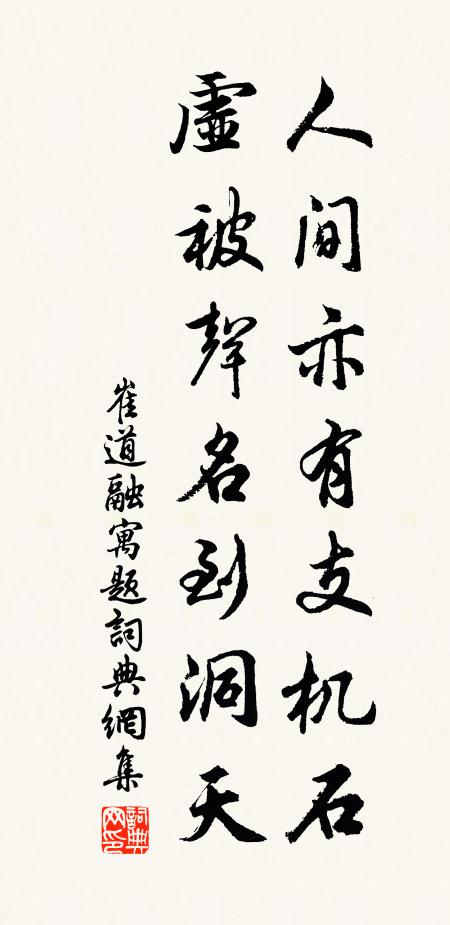 人间亦有支机石
虚被聲名到洞天
崔道融寓題詞典網集
詞典網印